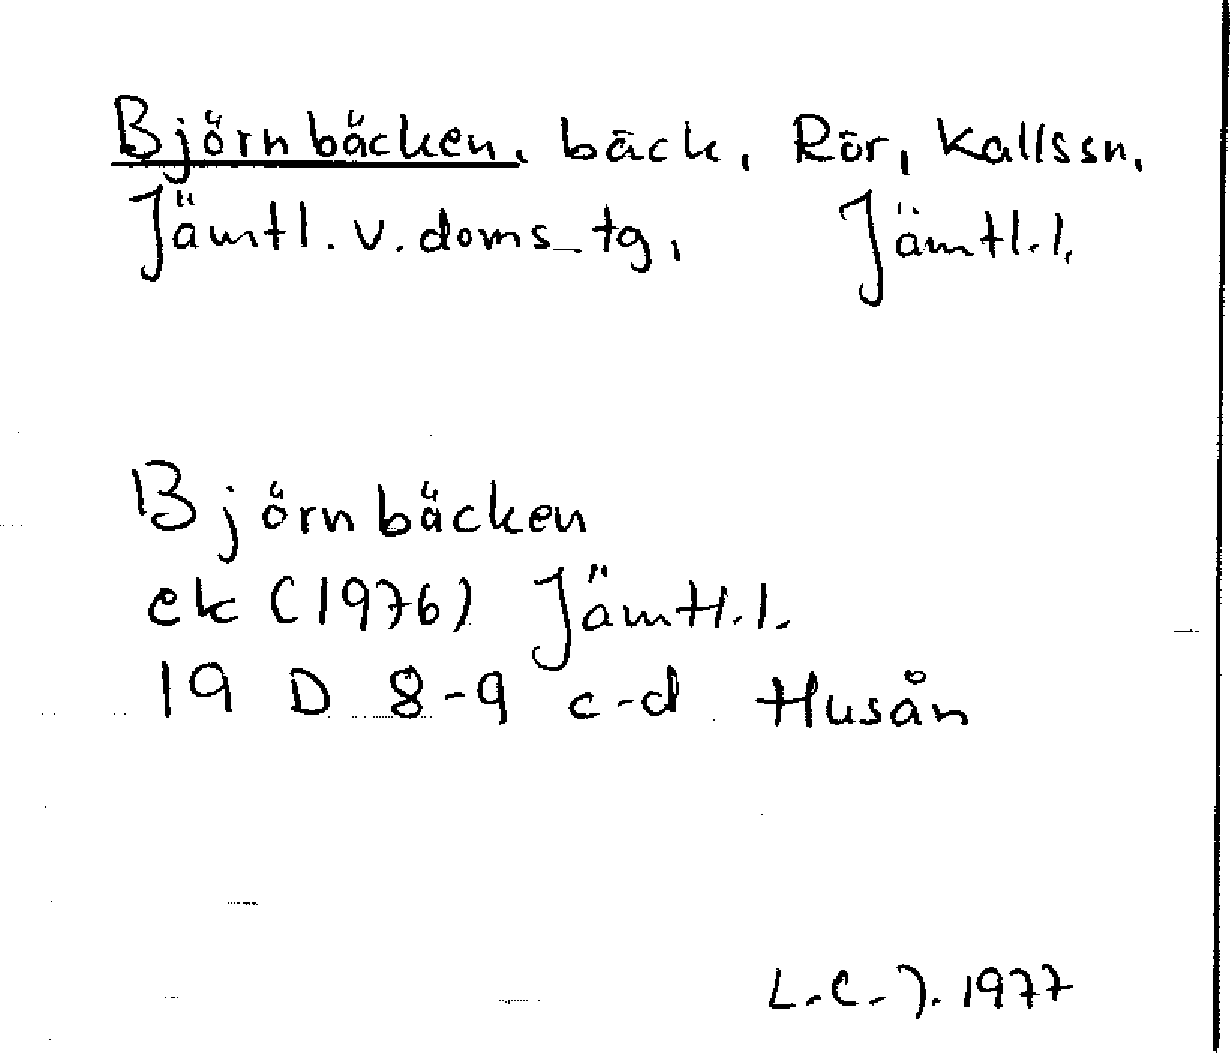 Björnbäcken, bäck, Rör, Kallssn,
Jämtl. v. doms. tg, Jämtl. l.
Björnbäcken
ek (1976) Jämtl. l.
19 D 8-9 c-d Husån
L.C.J. 1977